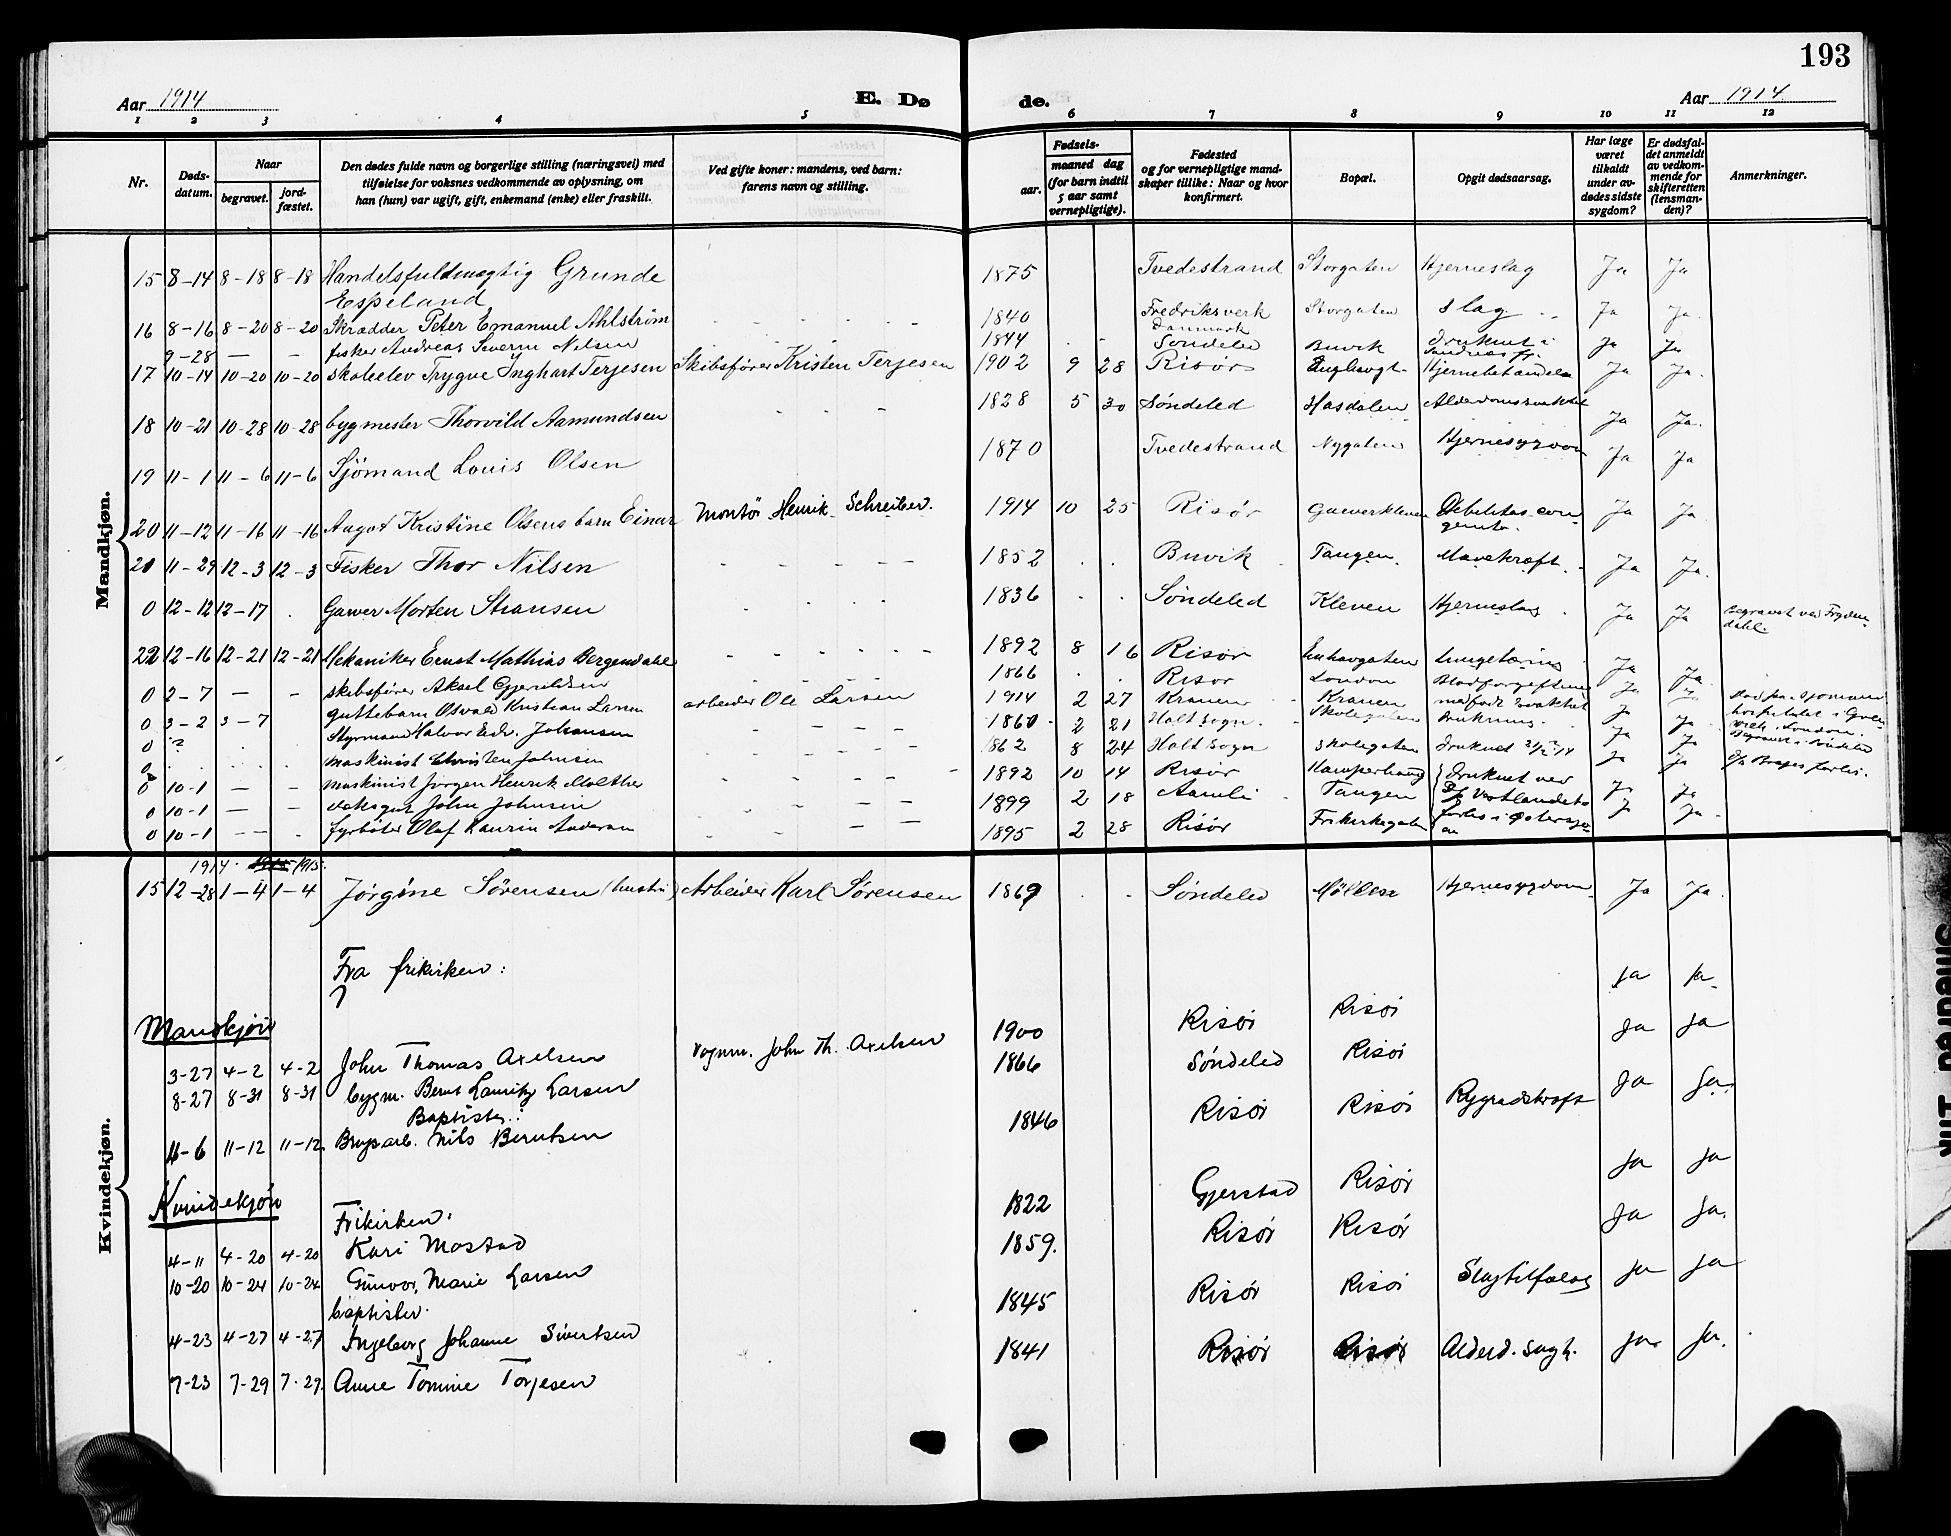 193
Aar 1914 E. Døde. Aar 1914
1 2 3 4 5 6 7 8 9 10 11 12
Nr. Døds-datum. Naar begravet. jord-fæstet. Den dødes fulde navn og borgerlige stilling (næringsvei) med tilføielse for voksnes vedkommende av oplysning, om han (hun) var ugift, gift, enkemand (enke) eller fraskilt. Ved gifte koner: mandens, ved barn: farens navn og stilling. Fødsels- aar. maaned dag (for barn indtil 5 aar samt vernepligtige). Fødested og for vernepligtige mand-skaper tillike: Naar og hvor konfirmert. Bopæl. Opgit dødsaarsag. Har læge været tilkaldt under av-dødes sidste sygdom? Er dødsfal-det anmeldt av vedkom-mende for skifteretten (lensman-den)? Anmerkninger.
Mandkjøn.
15 8-14 8-18 8-18 Handelsfuldmægtig Grunde Espeland 1875 Tvedestrand Storgaten Hjerneslag Ja Ja
16 8-16 8-20 8-20 Skrædder Peter Emanuel Ahlström 1840 Fredriksverk Danmark Storgaten Slag Ja Ja
9-28 — — fisker Andreas Severin Nilsen 1844 Søndeled Buvik druknet i Ja Ja
17 10-14 10-20 10-20 skoleelev Trygve Inghart Terjesen Skibsfører Kristen Terjesen 1902 9 28 Risør Hjernebetændelse Ja Ja
18 10-21 10-28 10-28 bygmester Thorvild Aamundsen 1828 5 30 Søndeled Hasdalen Alderdomssvakhet Ja Ja.
19 11-1 11-6 11-6 Sjömand Louis Olsen 1870 Tvedestrand Nygaten Hjernesygdom Ja Ja
20 11-12 11-16 11-16 Aagot Kristine Olsens barn Einar Montör Henrik Schreiber. 1914 10 25 Risør Garverkleven Debilitas congenita. Ja Ja
21 11-29 12-3 12-3 Fisker Thor Nilsen 1852 Buvik Tangen Mavekræft Ja Ja.
0 12-12 12-17 Garver Morten Stransen 1836 Søndeled Kleven Hjerneslag Ja Ja Begravet ved Frydendahl.
22 12-16 12-21 12-21 Mekaniker Ernst Mathias Bergendahl 1892 8 16 Risør Enhavgaten Lungetæring Ja Ja.
0 2-7 — - skibsfører Aksel Gjeruldsen 1866 Risør London Blodforgiftning Ja Ja
0 3-2 3-7 guttebarn Osvald Kristian Larsen arbeider Ole Larsen 1914 2 27 Kranen Kranen medfødt svakhet Ja Ja
0 ? Styrmand Halvor Edv. Johansen 1860 2 21 Holt sogn. Skolegaten Drukning Ja Ja
0 maskinist Christen Johnsen 1862 8 24 Holt sogn Skolegaten druknet Ja Ja
0 10-1 — — maskinist Jørgen Henrik Molther 1892 10 14 Risør Kamperhaug druknet ved Ja Ja
0 10-1 — — dæksgut John Johnsen 1899 2 18 Aamli Tangen D/S Vestlandets Ja Ja
0 10-1 — - fyrbøter Olaf Laurin Andersen 1895 2 28 Risør Frikirkegaten forlis i Østersjøen
Kvindekjøn.
1914. 1915.
15 12-28 1-4 1-4 Jørgine Sørensen (hustru) Arbeider Karl Sørensen 1869 Søndeled Möllen Hjernesygdom Ja Ja.
Fra frikirken: Ja Ja.
Mandkjøn
3-27 4-2 4-2 John Thomas Axelsen Vognm. John Th. Axelsen 1900 Risør Risør Ja Ja
8-27 8-31 8-31 bygm. Bernt Lauritz Larsen 1866 Søndeled Risør
Baptister:
11-6 11-12 11-12 Brygarb. Nils Berntsen 1846 Risør Risør Rygradskræft Ja Ja.
Kvindekjøn
Frikirken:
4-11 4-20 4-20 Kari Mostad 1822 Gjerstad Risør Ja Ja
10-20 10-24 10-24 Gunvor Marie Larsen 1859. Risør Risør Ja Ja.
baptister.
4-23 4-27 4-27 Ingeborg Johanne Sivertsen 1845 Risør Risør Slagtilfælde Ja Ja
7-23 7-29 7.29. Anne Tomine Torjesen 1841 Risør Risør Alderd. svagh. Ja. Ja.